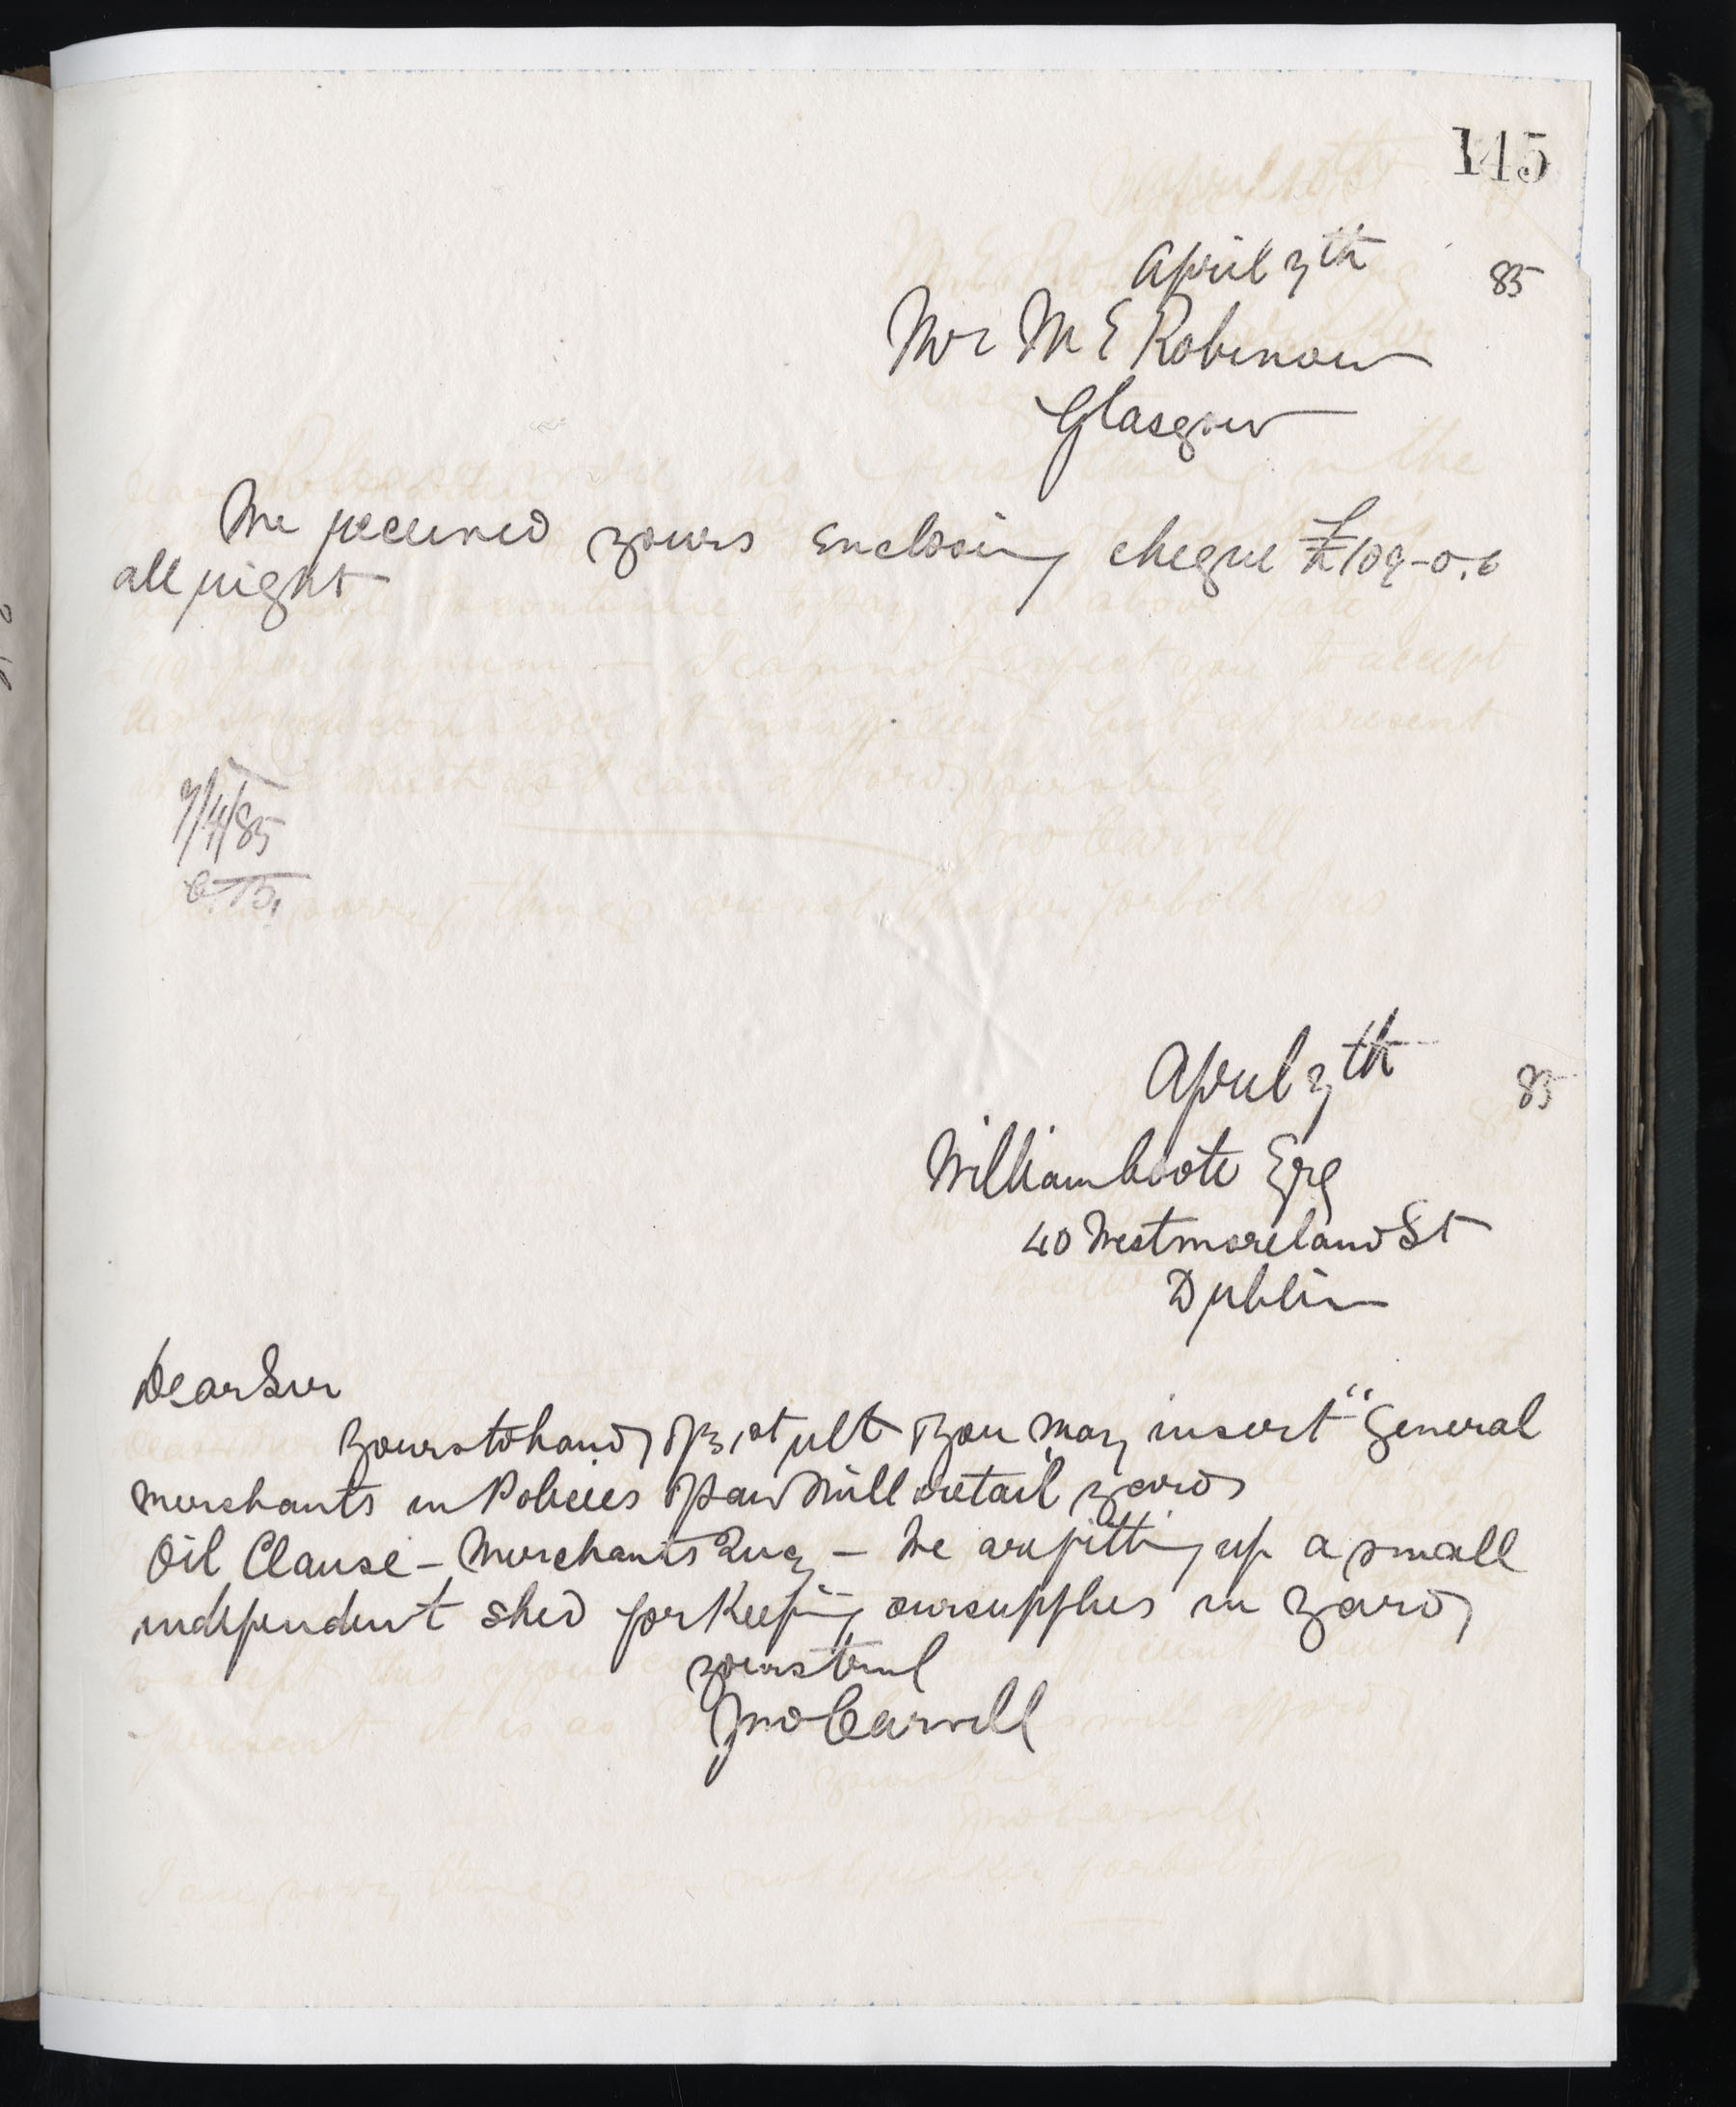 145
April 7th 85
Mr M E Robinow
Glasgow
We received yours enclosing cheque £109-0.6
all right
7/4/85
April 7th 85
William Coote Esq
40 Westmoreland St
Dublin
Dear Sir
Yours to hand of 31st ult You may insert "General
Merchants in Policies of Saw Mill & retail yard
Oil Clause - Merchants Quay - We are fitting up a small
independent shed for keeping our supplies in yard,
yours trul
Jno Carvill